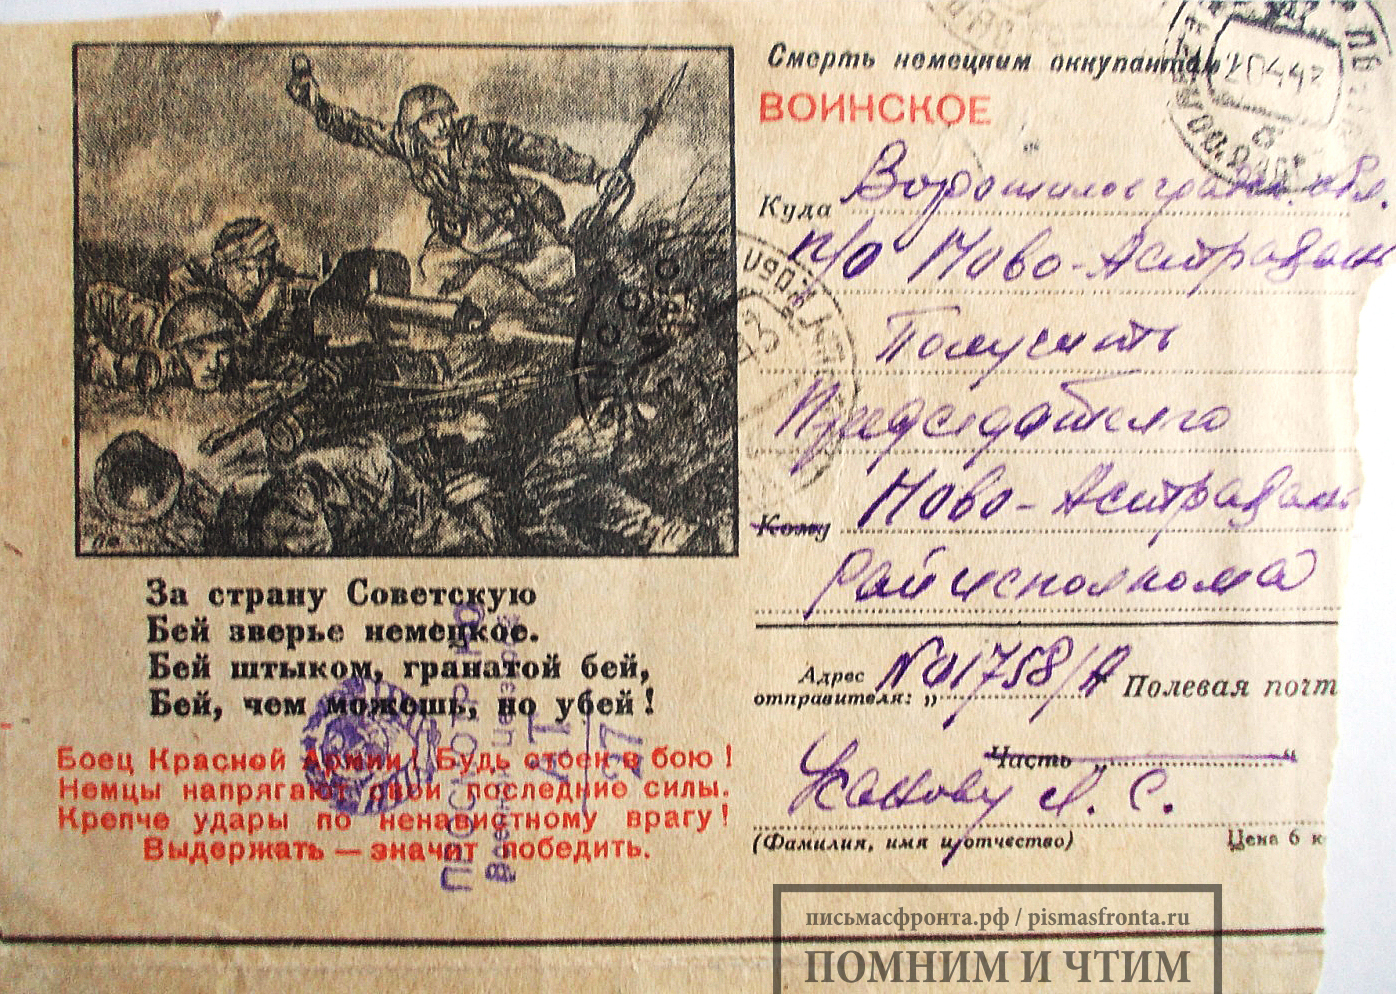 За страну Советскую
Бей зверье немецкое.
Бей штыком, гранатой бей,
Бей, чем можешь, но убей!
Боец Красной Армии! Будь стоек в бою!
Немцы напрягают свои последние силы.
Крепче удары по ненавистному врагу!
Выдержать — значит победить.
ПРОСМОТРЕНО
Военной Цензурой
27
Смерть немецким оккупантам!
ВОИНСКОЕ
Куда Ворошиловградск. обл.
п/о Ново-Астрахань
Получить
Председателю
Кому Ново-Астрахань
Райисполкома
Адрес отправителя: „№ 01758/А Полевая почт
Часть „ “
Усанову А. С.
(Фамилия, имя и отчество) Цена 6 к
письмасфронта.рф / pismasfronta.ru
ПОМНИМ И ЧТИМ